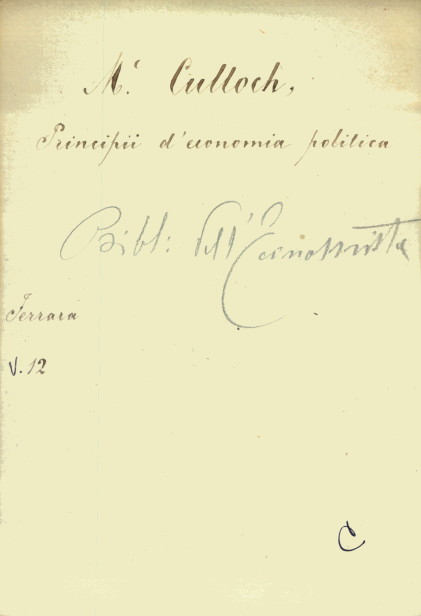 Mc. Culloch,
Principii d'economia politica
Bibl: dell'Economista
Ferrara
V. 12
C